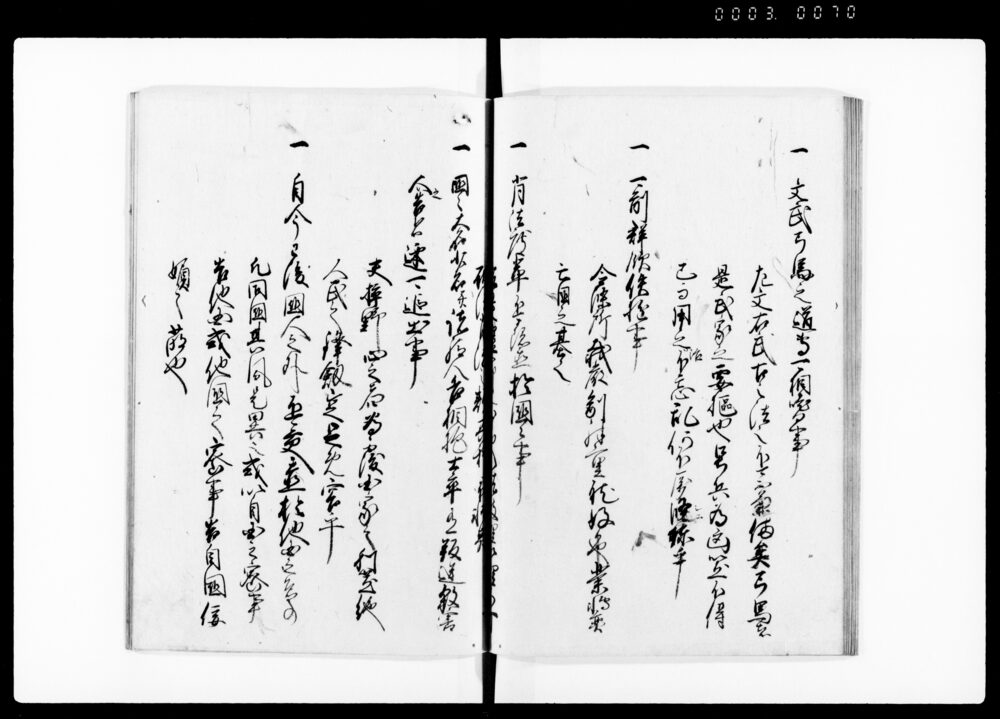 0003. 0070
一 文武弓馬之道専可相嗜事
左文右武古之法也不可不兼備矣弓馬者
是武家之要樞也号兵為凶器不得
已而用之治不忘乱何不励修錬乎
一 可制群飲佚遊事
令條所載厳制殊重耽好色業博奕
亡国之基也
一 背法度輩不可隠置於国々事
一 国々大名小名并諸給人各相抱士卒有叛逆殺害
人之告者速可追出事
夫挟野心之者為覆国家之利器絶
人民之鋒釼豈足允容乎
一 自今以後国人之外不可交置於他国者事
凡因国其風是異也或以自国之密事
告他国或他国之密事告自国佞
媚之萌也